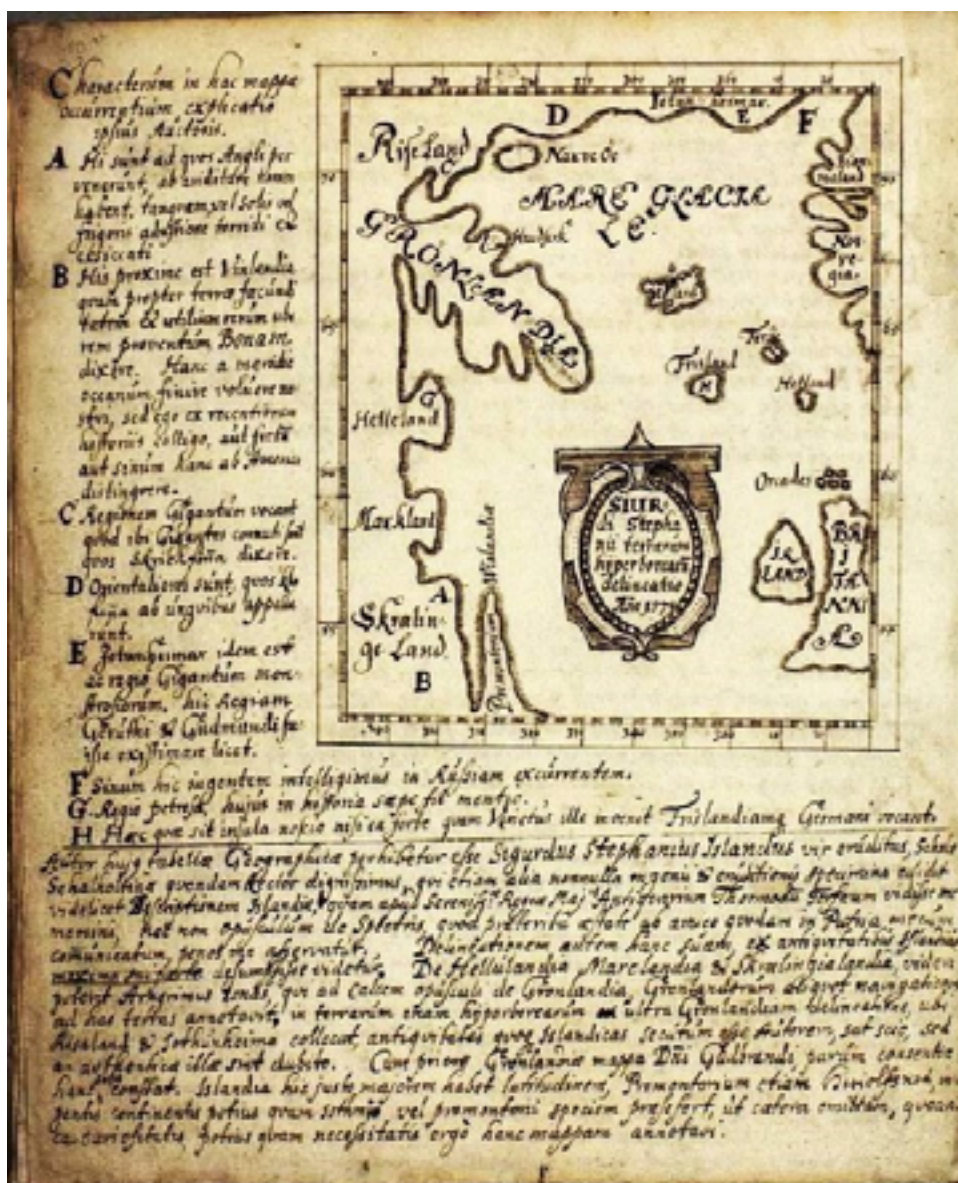 Characterum in hac mappa
occurrentium explicatio
ipsius Auctoris.
A Hi sunt ad quos Angli per
venerunt, ab ariditate nomen
habent, tanquam vel solis vel
frigoris adustione torridi et
exsiccati
B His proxime est Vinlandia
quam propter terræ fœcundi
tatem et utilium rerum ube
rem proventum Bonam
dixere. Hanc a meridie
oceanum finire voluere no
stri, sed ego ex recentiorum
historiis colligo, aut fretum
aut sinum hanc ab America
distinguere.
C Regionem Gigantum vocant
quod ibi Gigantes cornuti sint
quos Skrickfinna dixere.
D Orientaliores sunt, quos
ab unguibus appella
runt.
E Jotunheimar idem est
ac regio Gigantum mon-
strosorum, hic Regiam
Geruthi et Gudmundi fu
isse existimare licet.
F Sinum hic ingentem intelligimus in Russiam excurrentem.
G. Regio petrosa, hujus in historia sæpe fit mentio.
H Hæc quæ sit insula nescio nisi ea forte quam Venetus ille invenit Frislandiamq Germani vocant.
D
Jotun heimar
E
F
Riseland
Narve Oe
MARE GLACIA
LE
Biar
maland
Nor
ve
gia
GRONLANDIA
Island
Feroe
Frisland
H
Hetland
G
Helleland
Orcades
Markland
IR
LAND
BRI
TAN
NI
Æ
A
Skralin-
ge Land
B
Promontorium Winlandiæ
SIUR-
di Stepha
nii terrarum
hyperborearum
delineatio
Autor hujus tabellæ Geographicæ perhibetur esse Sigurdus Stephanius Islandus vir eruditus, Scholæ
Schalholtinæ quondam Rector dignissimus, qui etiam alia nonnulla ingenii et eruditionis specimina edidit
videlicet Descriptionem Islandiæ, quam apud Serenis. Regiæ Maj. Antiquarium Thormodum Torfæum vidisse me
memini, nec non opusculum de Spectris, quod præterita æstate ab amico quodam in Patria mecum
comunicatum, penes me asservatur. Delineationem autem hanc suam, ex antiquitatibus Islandicis
maxima sui parte desumpsisse videtur. De Hellulandia Marclandia et Skrælingialandia, videri
poterit Arngrimus Jonas, qui ad calcem opusculi de Gronlandia, Gronlandorum aliquot navigationes
ad has terras annotavit, in terrarum etiam hyperborearum ultra Gronlandiam delineatione, ubi
Risaland et Jothunheima collocat, antiquitates quoq Islandicas secutum esse Autorem, sat scio, sed
an authenticæ illæ sint dubito. Cum Gronlandiæ mappa Dni Gudbrandi, parum consentire
hanc constat. Islandia hic justo majorem habet latitudinem, Promontorium etiam Heriolfsnes,
continentis potius quam vel promontorii speciem præsefert, ut cætera omittam, quoniam
curiositatis potius quam necessitatis ergo hanc mappam annotavi.